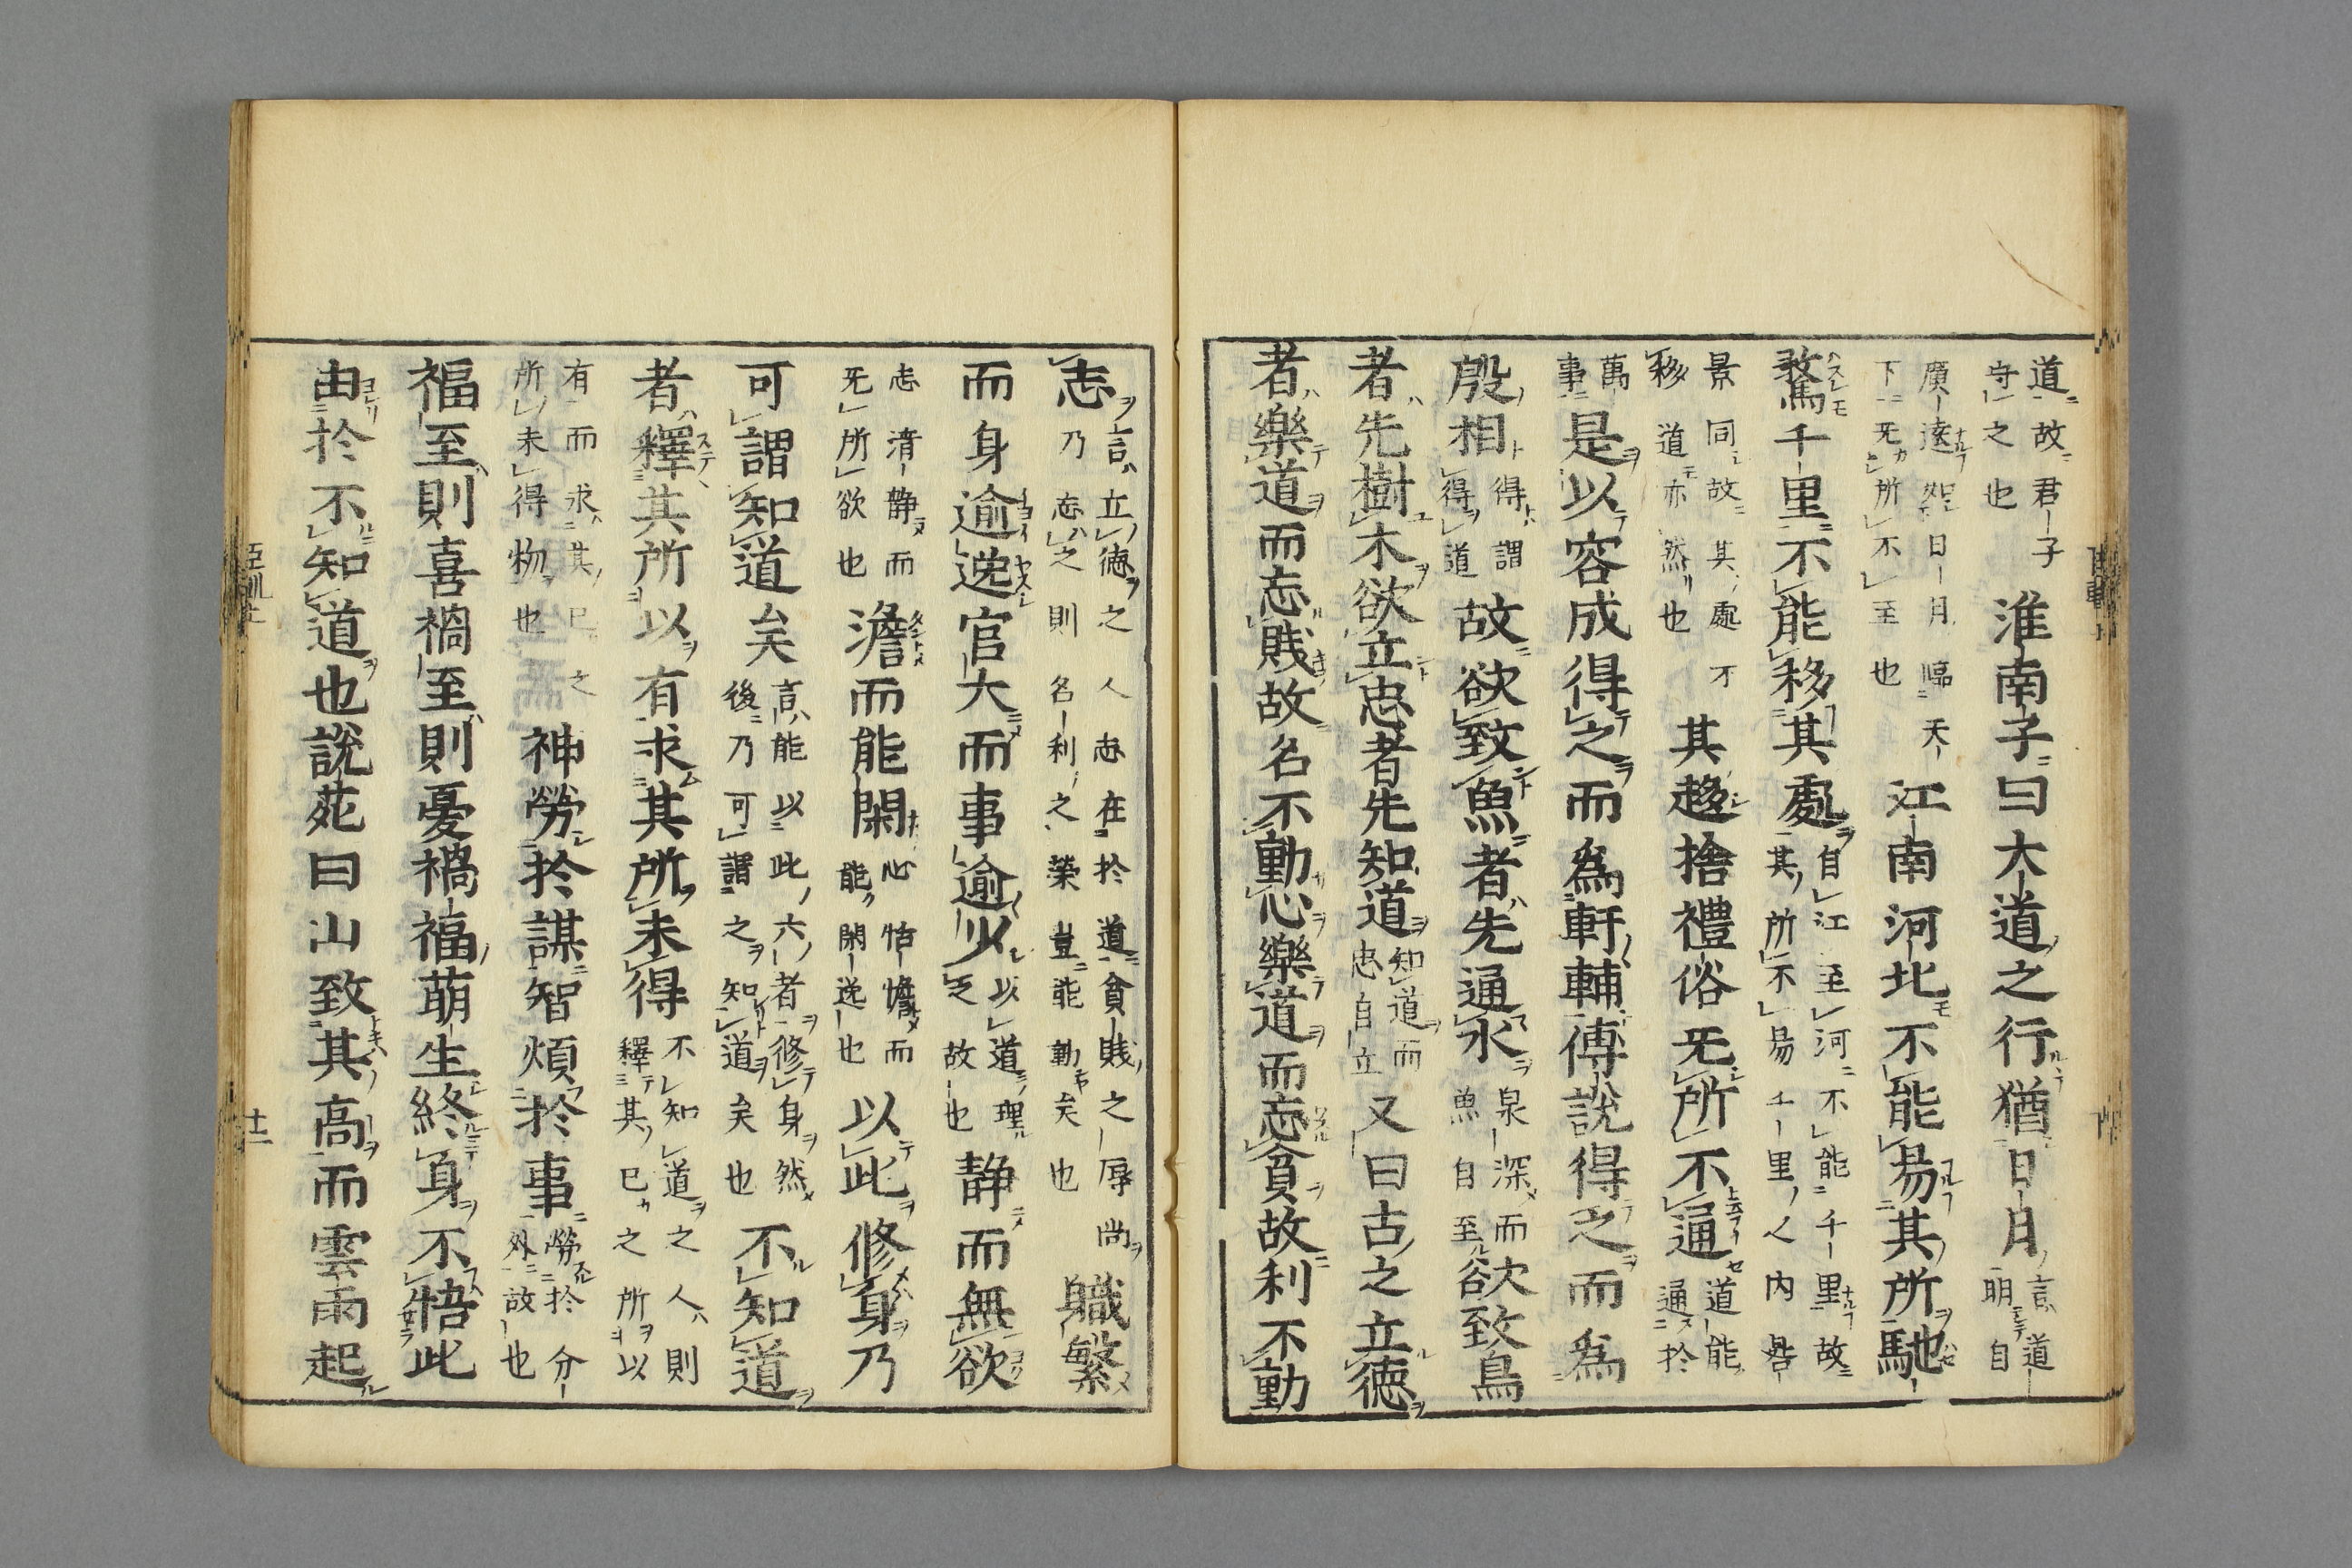 道故君子
守之也
淮南子曰大道之行猶日月
言道
明自
廣遠與日月臨天
下旡所不至也
江南河北不能易其所馳
騖千里不能移其處
自江至河不能千里故
其所不易千里人内皆
景同故其處不
移道亦然也
其趍捨禮俗旡所不通
道能
通於
萬
事
是以容成得之而為軒輔傅說得之而為
殷相
得謂
得道
故欲致魚者先通水
泉深而
魚自至
欲致鳥
者先樹木欲立忠者先知道
知道而
忠自立
又曰古之立德
者樂道而忘賤故名不動心樂道而忘貧故利不動
志
言立德之人志在於道貧賤之辱尚
乃忘之則名利之榮豈能動矣也
職繁
而身逾逸官大而事逾少
以道理
之故也
静而無欲
志清静而
旡所欲也
澹而能閑
心恬憺而
能閑逸也
以此修身乃
可謂知道矣
言能以此六者修身然
後乃可謂之知道矣也
不知道
者釋其所以有求其所未得
不知道之人則
釋其已之所以
有而求其已之
所未得物也
神勞於謀智煩於事
勞於分
外故也
福至則喜禍至則憂禍福萌生終身不悟此
由於不知道也說苑曰山致其高而雲雨起
臣訓上
十二